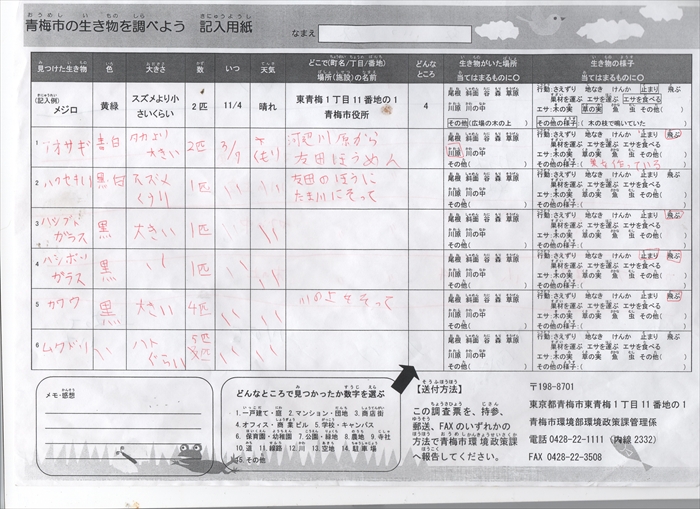 青梅市の生き物を調べよう 記入用紙
なまえ
見つけた生き物 色 大きさ 数 いつ 天気 どこで(町名/丁目/番地) 場所(施設)の名前 どんなところ 生き物がいた場所 当てはまるものに○ 生き物の様子 当てはまるものに○
(記入例) メジロ 黄緑 スズメより小さいくらい 2匹 11/4 晴れ 東青梅1丁目11番地の1 青梅市役所 4
尾根 斜面 谷 森 草原
川原 川の中
その他(広場の木の上)
行動:さえずり 地なき けんか 止まり 飛ぶ
巣材を運ぶ エサを運ぶ エサを食べる
エサ:木の実 草の実 魚 虫 その他( )
その他の様子( 木の枝で鳴いていた
1 アオサギ 青白 大きい 2匹 3/7 川原から 友田ほうめん
尾根 斜面 谷 森 草原
川原 川の中
その他( )
行動:さえずり 地なき けんか 止まり 飛ぶ
巣材を運ぶ エサを運ぶ エサを食べる
エサ:木の実 草の実 魚 虫 その他( )
その他の様子( 巣を作っている
2 ハクセキレイ 黒白 スズメくらい 1匹 〃 〃 友田のほうに たま川にそって
尾根 斜面 谷 森 草原
川原 川の中
その他( )
行動:さえずり 地なき けんか 止まり 飛ぶ
巣材を運ぶ エサを運ぶ エサを食べる
エサ:木の実 草の実 魚 虫 その他( )
その他の様子(
3 ハシブトガラス 黒 大きい 1匹 〃 〃
尾根 斜面 谷 森 草原
川原 川の中
その他( )
行動:さえずり 地なき けんか 止まり 飛ぶ
巣材を運ぶ エサを運ぶ エサを食べる
エサ:木の実 草の実 魚 虫 その他( )
その他の様子(
4 ハシボソガラス 黒 〃 1匹 〃 〃
尾根 斜面 谷 森 草原
川原 川の中
その他( )
行動:さえずり 地なき けんか 止まり 飛ぶ
巣材を運ぶ エサを運ぶ エサを食べる
エサ:木の実 草の実 魚 虫 その他( )
その他の様子(
5 カワウ 黒 大きい 4匹 〃 〃 川の上をそって
尾根 斜面 谷 森 草原
川原 川の中
その他( )
行動:さえずり 地なき けんか 止まり 飛ぶ
巣材を運ぶ エサを運ぶ エサを食べる
エサ:木の実 草の実 魚 虫 その他( )
その他の様子(
6 ムクドリ 〃 ハトぐらい 〃 〃
尾根 斜面 谷 森 草原
川原 川の中
その他( )
行動:さえずり 地なき けんか 止まり 飛ぶ
巣材を運ぶ エサを運ぶ エサを食べる
エサ:木の実 草の実 魚 虫 その他( )
その他の様子(
メモ・感想
どんなところで見つかったか数字を選ぶ
1.一戸建て・庭 2.マンション・団地 3.商店街
4.オフィス・商業ビル 5.学校・キャンパス
6.保育園・幼稚園 7.公園・緑地 8.農地 9.寺社
10.道 11.線路 12.川 13.空地 14.駐車場
15 その他
【送付方法】
この調査票を、持参、
郵送、FAXのいずれかの
方法で青梅市環境政策課
へ報告してください。
〒198-8701
東京都青梅市東青梅1丁目11番地の1
青梅市環境部環境政策課管理係
電話 0428-22-1111(内線2332)
FAX 0428-22-3508